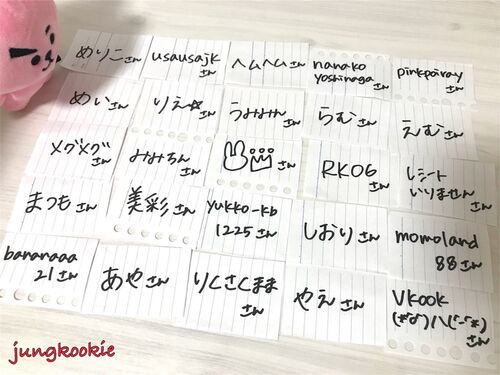 めりこさん
usausajk
さん
ヘムヘムさん
nanako
yoshinaga
さん
pinkpoiray
さん
めいさん
りえ☆さん
うみみんさん
らむさん
えむさん
メグメグ
さん
みみちん
さん
さん
RK06
さん
レシート
いりません
さん
まつもさん
美彩さん
yukko-kb
1225さん
しおりさん
momoland
88さん
bananaaa
21さん
あやさん
りくさくまま
さん
やえさん
Vkook
さん
jungkookie